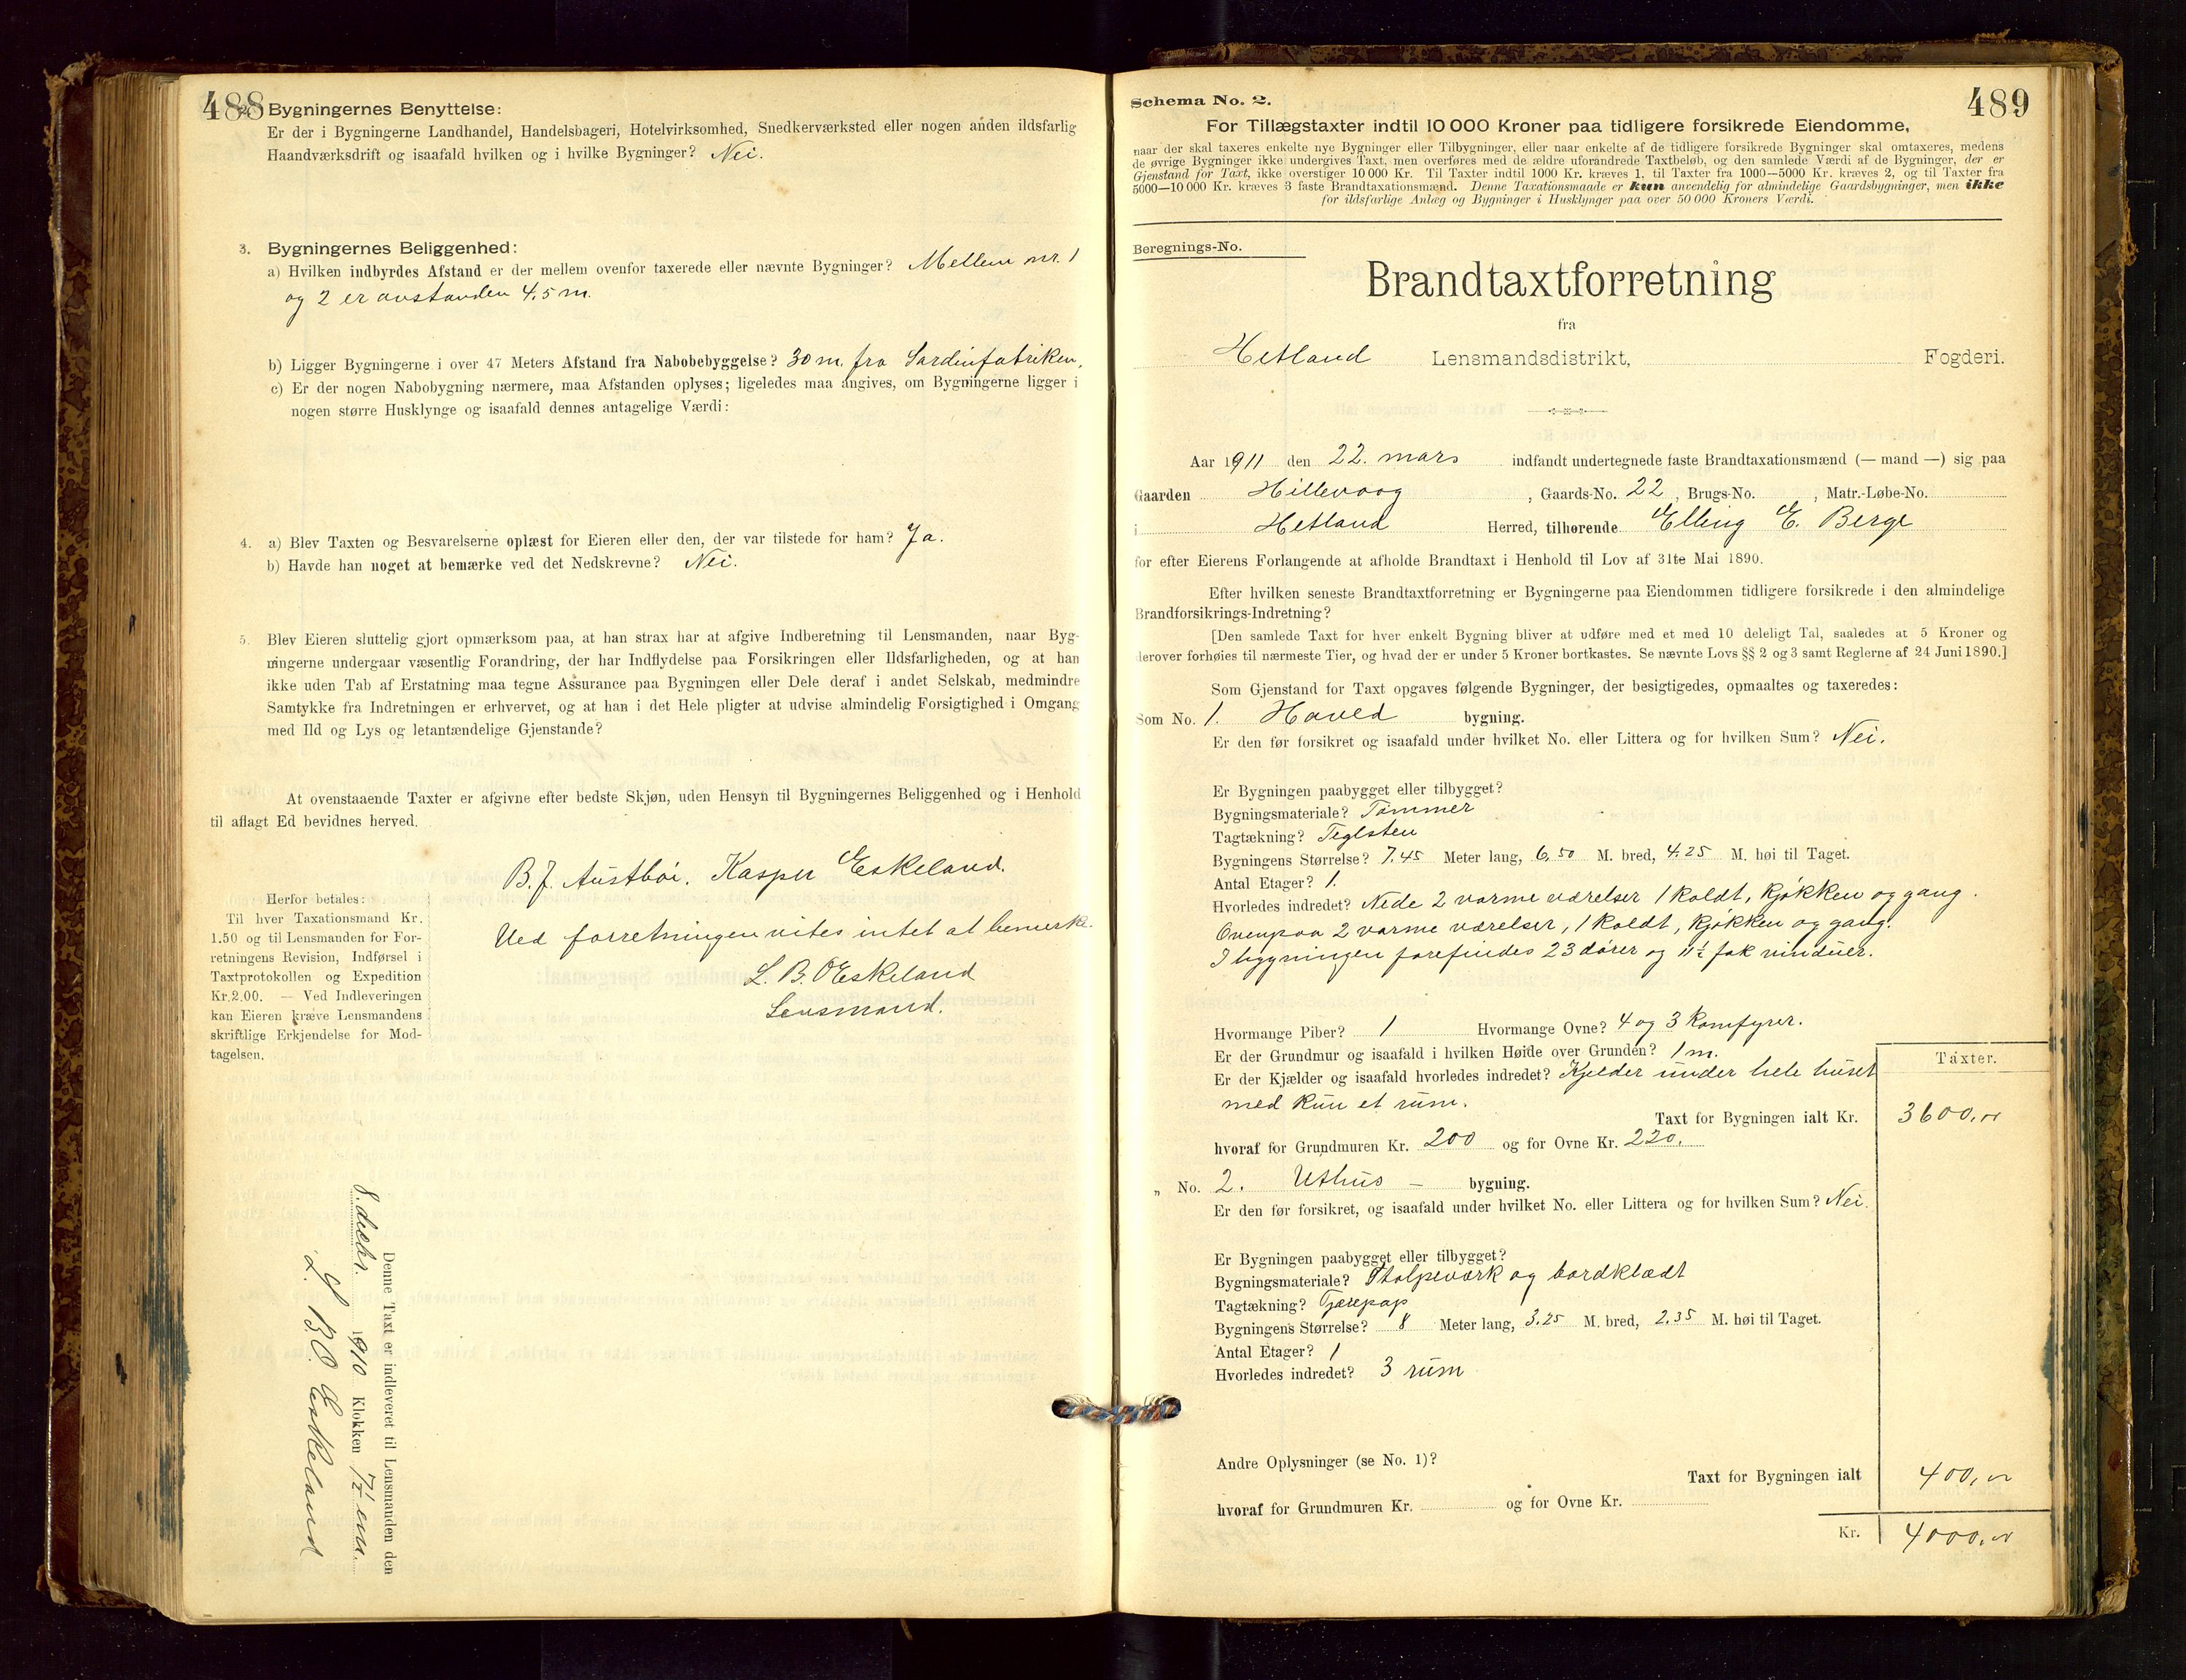 488
2. Bygningernes Benyttelse:
Er der i Bygningerne Landhandel, Handelsbageri, Hotelvirksomhed, Snedkerværksted eller nogen anden ildsfarlig
Haandværksdrift og isaafald hvilken og i hvilke Bygninger? Nei.
3. Bygningernes Beliggenhed:
a) Hvilken indbyrdes Afstand er der mellem ovenfor taxerede eller nævnte Bygninger? Mellem nr. 1
og 2 er avstanden 4,5 m.
b) Ligger Bygningerne i over 47 Meters Afstand fra Nabobebyggelse? 30 m. fra Sardinfabriken,
c) Er der nogen Nabobygning nærmere, maa Afstanden oplyses; ligeledes maa angives, om Bygningerne ligger i
nogen større Husklynge og isaafald dennes antagelige Værdi:
4. a) Blev Taxten og Besvarelserne oplæst for Eieren eller den, der var tilstede for ham? Ja.
b) Havde han noget at bemærke ved det Nedskrevne? Nei.
5. Blev Eieren sluttelig gjort opmærksom paa, at han strax har at afgive Indberetning til Lensmanden, naar Byg-
ningerne undergaar væsentlig Forandring, der har Indflydelse paa Forsikringen eller Ildsfarligheden, og at han
ikke uden Tab af Erstatning maa tegne Assurance paa Bygningen eller Dele deraf i andet Selskab, medmindre
Samtykke fra Indretningen er erhvervet, og at han i det Hele pligter at udvise almindelig Forsigtighed i Omgang
med Ild og Lys og letantændelige Gjenstande?
At ovenstaaende Taxter er afgivne efter bedste Skjøn, uden Hensyn til Bygningernes Beliggenhed og i Henhold
til aflagt Ed bevidnes herved.
B. J. Austbøi. Kasper Eskeland.
Ved forretningen vites intet at bemerke.
L. B. O Eskeland
Lensmand.
Herfor betales:
Til hver Taxationsmand Kr.
1.50 og til Lensmanden for For-
retningens Revision, Indførsel i
Taxtprotokollen og Expedition
Kr. 2.00. — Ved Indleveringen
kan Eieren kræve Lensmandens
skriftlige Erkjendelse for Mod-
tagelsen.
Denne Taxt er indleveret til Lensmanden den
8. decbr. 1910 Klokken 7½ em.
L. B. O. Eskeland
489
Schema No. 2.
For Tillægstaxter indtil 10 000 Kroner paa tidligere forsikrede Eiendomme,
naar der skal taxeres enkelte nye Bygninger eller Tilbygninger, eller naar enkelte af de tidligere forsikrede Bygninger skal omtaxeres, medens
de øvrige Bygninger ikke undergives Taxt, men overføres med de ældre uforandrede Taxtbeløb, og den samlede Værdi af de Bygninger, der er
Gjenstand for Taxt, ikke overstiger 10 000 Kr. Til Taxter indtil 1000 Kr. kræves 1, til Taxter fra 1000—5000 Kr. kræves 2, og til Taxter fra
5000—10 000 Kr. kræves 3 faste Brandtaxationsmænd. Denne Taxationsmaade er kun anvendelig for almindelige Gaardsbygninger, men ikke
for ildsfarlige Anlæg og Bygninger i Husklynger paa over 50 000 Kroners Værdi.
Beregnings-No.
Brandtaxtforretning
fra
Hetland Lensmandsdistrikt, Fogderi.
Aar 1911 den 22. mars indfandt undertegnede faste Brandtaxationsmænd (— mand —) sig paa
Gaarden Hillevaag, Gaards-No. 22, Brugs-No. , Matr.-Løbe-No.
i Hetland Herred, tilhørende Elling E. Berge
for efter Eierens Forlangende at afholde Brandtaxt i Henhold til Lov af 31te Mai 1890.
Efter hvilken seneste Brandtaxtforretning er Bygningerne paa Eiendommen tidligere forsikrede i den almindelige
Brandforsikrings-Indretning?
[Den samlede Taxt for hver enkelt Bygning bliver at udføre med et med 10 deleligt Tal, saaledes at 5 Kroner og
derover forhøies til nærmeste Tier, og hvad der er under 5 Kroner bortkastes. Se nævnte Lovs §§ 2 og 3 samt Reglerne af 24 Juni 1890.]
Som Gjenstand for Taxt opgaves følgende Bygninger, der besigtigedes, opmaaltes og taxeredes:
Som No. 1. Hoved bygning.
Er den før forsikret og isaafald under hvilket No. eller Littera og for hvilken Sum? Nei.
Er Bygningen paabygget eller tilbygget?
Bygningsmateriale? Tømmer
Tagtækning? Teglsten
Bygningens Størrelse? 7,45 Meter lang, 6,50 M. bred, 4,25 M. høi til Taget.
Antal Etager? 1.
Hvorledes indredet? Nede 2 varme værelser 1 koldt, kjøkken og gang.
Ovenpaa 2 varme værelser, 1 koldt, kjøkken og gang.
I bygningen forefindes 23 dører og 11½ fak vinduer.
Hvormange Piber? 1 Hvormange Ovne? 4 og 3 komfyrer.
Er der Grundmur og isaafald i hvilken Høide over Grunden? 1 m.
Er der Kjælder og isaafald hvorledes indredet? Kjelder under hele huset
med kun et rum.
Taxter.
Taxt for Bygningen ialt Kr. 3600,00
hvoraf for Grundmuren Kr. 200 og for Ovne Kr. 220.
„ No. 2. Uthus — bygning.
Er den før forsikret, og isaafald under hvilket No. eller Littera og for hvilken Sum? Nei.
Er Bygningen paabygget eller tilbygget?
Bygningsmateriale? Stolpeværk og bordklædt
Tagtækning? Tjærepap
Bygningens Størrelse? 8 Meter lang, 3,25 M. bred, 2,35 M. høi til Taget.
Antal Etager? 1
Hvorledes indredet? 3 rum
Andre Oplysninger (se No. 1)?
Taxt for Bygningen ialt 400,00
hvoraf for Grundmuren Kr. og for Ovne Kr.
Kr. 4000,00